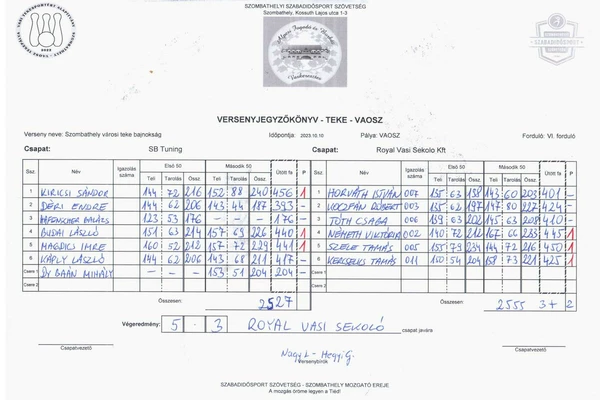 SZOMBATHELYI SZABADIDŐSPORT SZÖVETSÉG
Szombathely, Kossuth Lajos utca 1-3
VERSENYJEGYZŐKÖNYV - TEKE - VAOSZ
Verseny neve: Szombathely városi teke bajnokság Időpontja: 2023.10.10 Pálya: VAOSZ Forduló: VI. forduló
Csapat: SB Tuning Csapat: Royal Vasi Sekolo Kft
Ssz. Név Igazolás száma Első 50 Második 50 Ütött fa P Ssz. Név Igazolás száma Első 50 Második 50 Ütött fa P
Teli Tarolás Össz. Teli Tarolás Össz. Teli Tarolás Össz. Teli Tarolás Össz.
1 KIRICSI SÁNDOR 144 72 216 152 88 240 456 1 1 HORVÁTH ISTVÁN 007 135 63 198 143 60 203 401 -
2 DÉRI ENDRE 144 62 206 143 44 187 393 - 2 RÓBERT 003 135 62 197 147 80 227 424 -
3 BALÁZS 123 53 176 - - - 176 - 3 TÓTH CSABA 006 139 63 202 145 63 208 410 -
4 BUDAI LÁSZLÓ 151 63 214 157 69 226 440 1 4 NÉMETH VIKTÓRIA 002 140 72 212 167 66 233 445 1
5 MAGDICS IMRE 160 52 212 157 72 229 441 1 5 SZELE TAMÁS 005 155 79 234 144 72 216 450 1
6 KÁPLY LÁSZLÓ 144 62 206 143 68 211 417 - 6 TAMÁS 011 150 54 204 158 73 221 425 1
Csere 1 Dr GAÁN MIHÁLY - - - 153 51 204 204 - Csere 1
Csere 2 Csere 2
Összesen: 2527 Összesen: 2555 3+2
Végeredmény: 5 - 3 ROYAL VASI SEKOLÓ csapat javára
Nagy L - Hegyi G.
Csapatvezető Versenybírók Csapatvezető
SZABADIDŐSPORT SZÖVETSÉG - SZOMBATHELY MOZGATÓ EREJE
A mozgás öröme legyen a Tiéd!